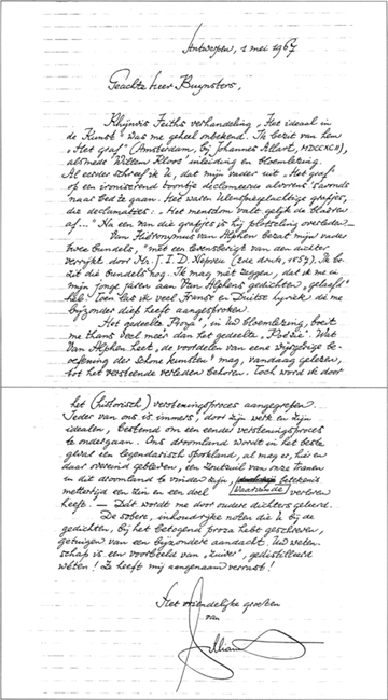 Antwerpen, 1 mei 1967
Geachte heer Buynsters,
Rhijnvis Feiths verhandeling "Het ideaal in
de Kunst" was me geheel onbekend. Ik bezit van hem
"Het graf" (Amsterdam, bij Johannes Allart, MDCCXCII),
alsmede Willem Kloos' inleiding en bloemlezing.
Al eerder schreef ik u, dat mijn vader uit "Het graf"
op een ironiserend toontje declameerde alvorens 's avonds
naar bed te gaan. Het waren Uilenspiegelachtige grapjes,
die declamaties: "Het mensdom valt gelijk de blaären
af..." Na een van die grapjes is hij plotseling overleden. —
Van Hieronymus van Alphen bezat mijn vader
twee bundels, "met een levensberigt van den dichter
verrijkt door Mr. J.I.D. Nepveu (2de druk, 1857). Ik be-
zit die bundels nog. Ik mag niet zeggen, dat ik me in
mijn jonge jaren aan Van Alphens gedichten "gelaafd"
heb. Toen las ik veel Franse en Duitse lyriek die me
bijzonder diep heeft aangesproken.
Het gedeelte "Proza", in uw bloemlezing, boeit
me thans veel meer dan het gedeelte "Poëzie". Wat
Van Alphen heet, de voordelen van eene wijsgeerige be-
oefening der schone kunsten" mag, vandaag gelezen,
tot het versteende verleden behoren. Toch word ik door
het (historisch) versteningsproces aangegrepen.
Ieder van ons is immers, door zijn werk en zijn
idealen, bestemd om een eender versteningsproces
te ondergaan. Ons droomland wordt in het beste
geval een legendarisch spookland, al mag er, hier en
daar overeind gebleven, een zoutzuil van onze tranen
in dit droomland te vinden zijn, betekenis
mettertijd een zin en een doel waarvan de verloren
heeft. — Dàt wordt me door oudere dichters geleerd.
De sobere, inhoudrijke noten die u bij de
gedichten, bij het betogend proza hebt geschreven,
getuigen van een bijzondere aandacht. Uw weten-
schap is een voorbeeld van "zuiver", gedistilleerd
weten! Ze heeft mij aangenaam verrast!
Met vriendelijke groeten
van